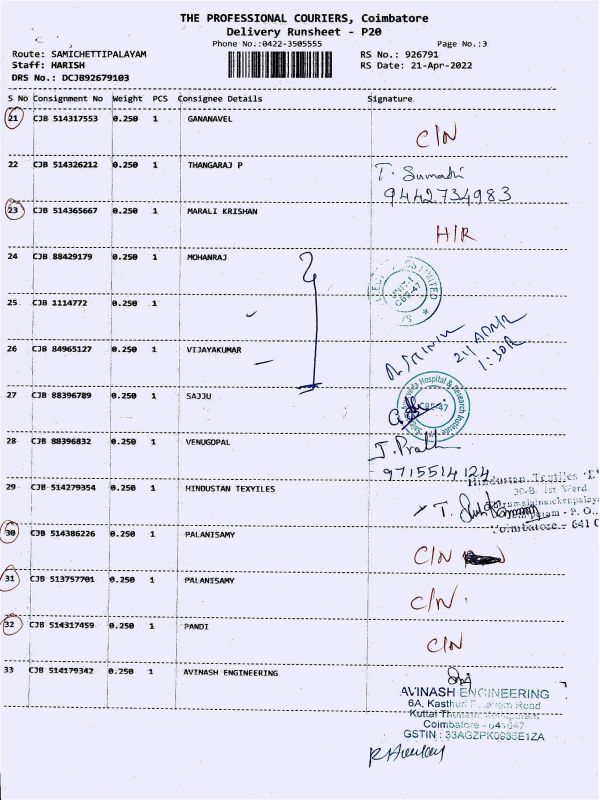 THE PROFESSIONAL COURIERS, Coimbatore
Delivery Runsheet - P20
Phone No.:0422-3505555 Page No.:3
Route: SAMICHETTIPALAYAM RS No.: 926791
Staff: HARISH RS Date: 21-Apr-2022
DRS No.: DCJB92679103
S No Consignment No Weight PCS Consignee Details Signature
21 CJB 514317553 0.250 1 GANANAVEL
C/N
22 CJB 514326212 0.250 1 THANGARAJ P T. Sumathi
9442734983
23 CJB 514365667 0.250 1 MARALI KRISHAN
H/R
24 CJB 88429179 0.250 1 MOHANRAJ
LIMITED
UNIT-1
CBE-47
25 CJB 1114772 0.250 1
26 CJB 84965127 0.250 1 VIJAYAKUMAR
1:30
27 CJB 88396789 0.250 1 SAJJU
Hospital & Research Institute
CBE-47
28 CJB 88396832 0.250 1 VENUGOPAL
9715514124
Hindustan Texyiles
29 CJB 514279354 0.250 1 HINDUSTAN TEXYILES
30-B, 1st Ward
T.
P. O.
Coimbatore - 641 0
30 CJB 514386226 0.250 1 PALANISAMY
C/N
31 CJB 513757701 0.250 1 PALANISAMY
C/N.
32 CJB 514317459 0.250 1 PANDI
C/N
33 CJB 514179342 0.250 1 AVINASH ENGINEERING
AVINASH ENGINEERING
6A, Kasthuri Road
Kuttai Thottam
Coimbatore - 641047
GSTIN : 33AGZPK0935E1ZA